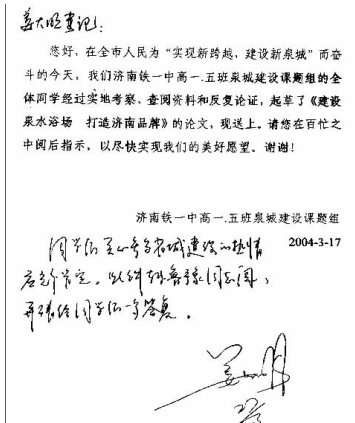 姜大明书记：
您好，在全市人民为“实现新跨越，建设新泉城”而奋
斗的今天，我们济南铁一中高一.五班泉城建设课题组的全
体同学经过实地考察、查阅资料和反复论证，起草了《建设
泉水浴场 打造济南品牌》的论文，现送上。请您在百忙之
中阅后指示，以尽快实现我们的美好愿望。谢谢！
济南铁一中高一.五班泉城建设课题组
2004-3-17
同学们关心泉城建设的热情
应充分肯定。同志阅，
再转给同学们一个答复。
姜大明